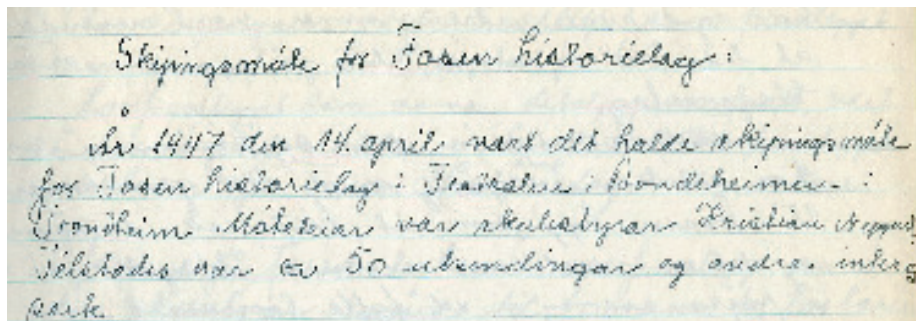 Skipingsmøte for Fosen historielag:
År 1947 den 14. april vart det halde skipingsmøte
for Fosen historielag i Festsalen Trondheimen i
Trondheim Møteleiar var skulestyrar Kristian
Tilstades var ca 50 utsendingar og andre inter